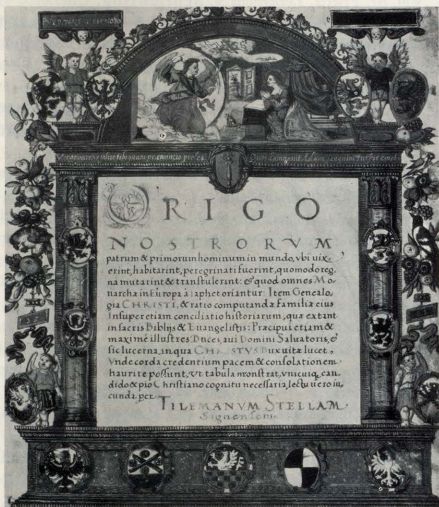 ORIGO
NOSTRORVM
patrum & primorum hominum in mundo, vbi uix=
erint, habitarint, peregrinati fuerint, quomodo reg,
na mutarint & transtulerint: & quod omnes Mo
narchæ in Europa à Iaphet oriantur. Item Genealo,
gia CHRISTI, & ratio computandæ familiæ eius
Insuper etiam conciliatio historiarum, quæ extant
in sacris Biblijs & Euangelistis: Præcipui etiam &
maximè illustres Duces, aui Domini Saluatoris, &
sic lucerna, in qua CHRISTVS Dux uitæ lucet,
Vnde corda credentium pacem & consolationem
haurire possunt. Vt tabula monstrat, vnicuiq, can,
dido & pio Christiano cognitu necessaria, lectu uero iu,
cunda, per
TILEMANVM STELLAM
Sigenensem